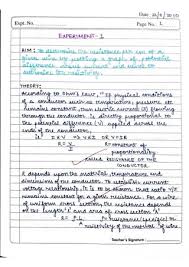 Date: 21/5/2010
Expt. No.
Page No. 1
EXPERIMENT-1
AIM: To determine the resistance per cm of a
given wire by plotting a graph of potential
difference versus current and hence to
determine its resistivity.
THEORY:
According to Ohm's law, "If physical conditions
of a conductor such as temperature, pressure etc.
remains constant, then electric current (I) flowing
through the conductor is directly proportional to
the potential difference (V) applied across the
ends of the conductor.
i.e. I ∝ V ⇒ V ∝ I OR V = IR
R = V/I R = constant of
proportionality
called RESISTANCE OF THE
CONDUCTOR.
R depends upon the material, temperature and
dimensions of the conductor. To establish current
voltage relationship, it is to be shown that ratio V/I
remains constant for a given resistance. For a wire
of uniform cross section the resistance depends
on the length 'l' and area of cross section 'A'
resistivity of the material of wire
Teacher's Signature